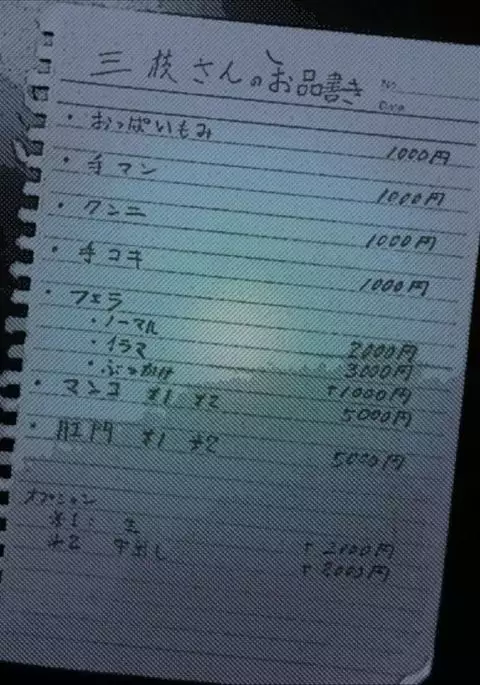 三枝さんのお品書き
No.
Date
・おっぱいもみ 1000円
・手マン 1000円
・クンニ 1000円
・手コキ 1000円
・フェラ
・ノーマル 2000円
・イラマ 3000円
・ぶっかけ +1000円
・マンコ *1 *2 5000円
・肛門 *1 *2 5000円
オプション
*1: 生 +2000円
*2 中出し +2000円